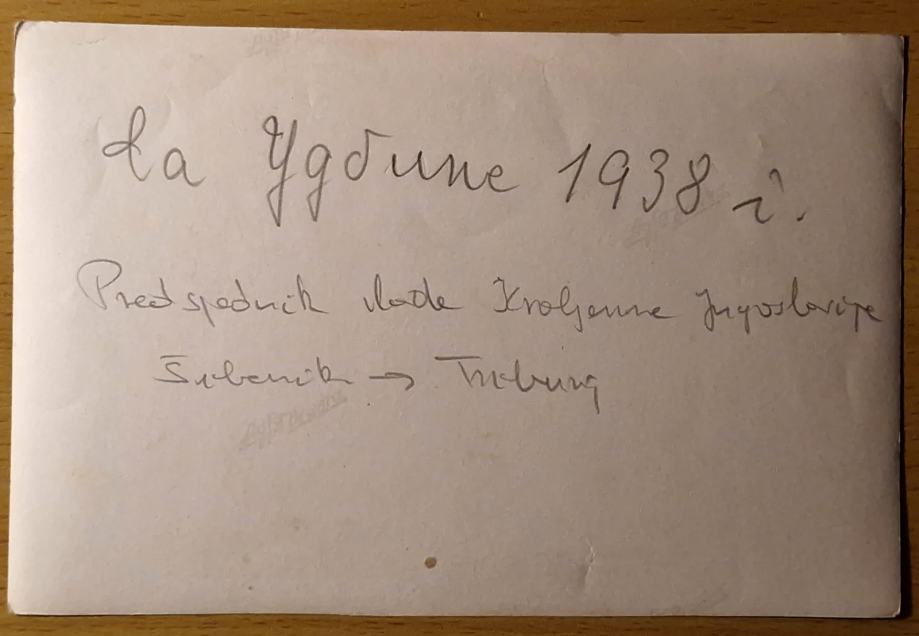 са Удбине 1938 г.
Predsjednik vlade Kraljevine Jugoslavije
Šibenik → Tribunj